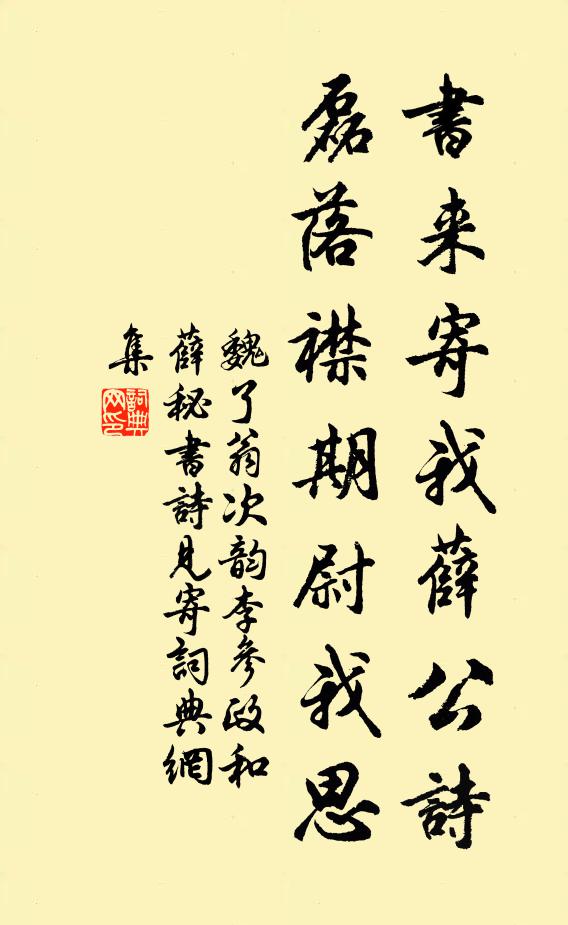 書来寄我薛公詩
磊落襟期尉我思
魏了翁次韵李參政和
薛秘書詩見寄詞典網
集
詞典網印